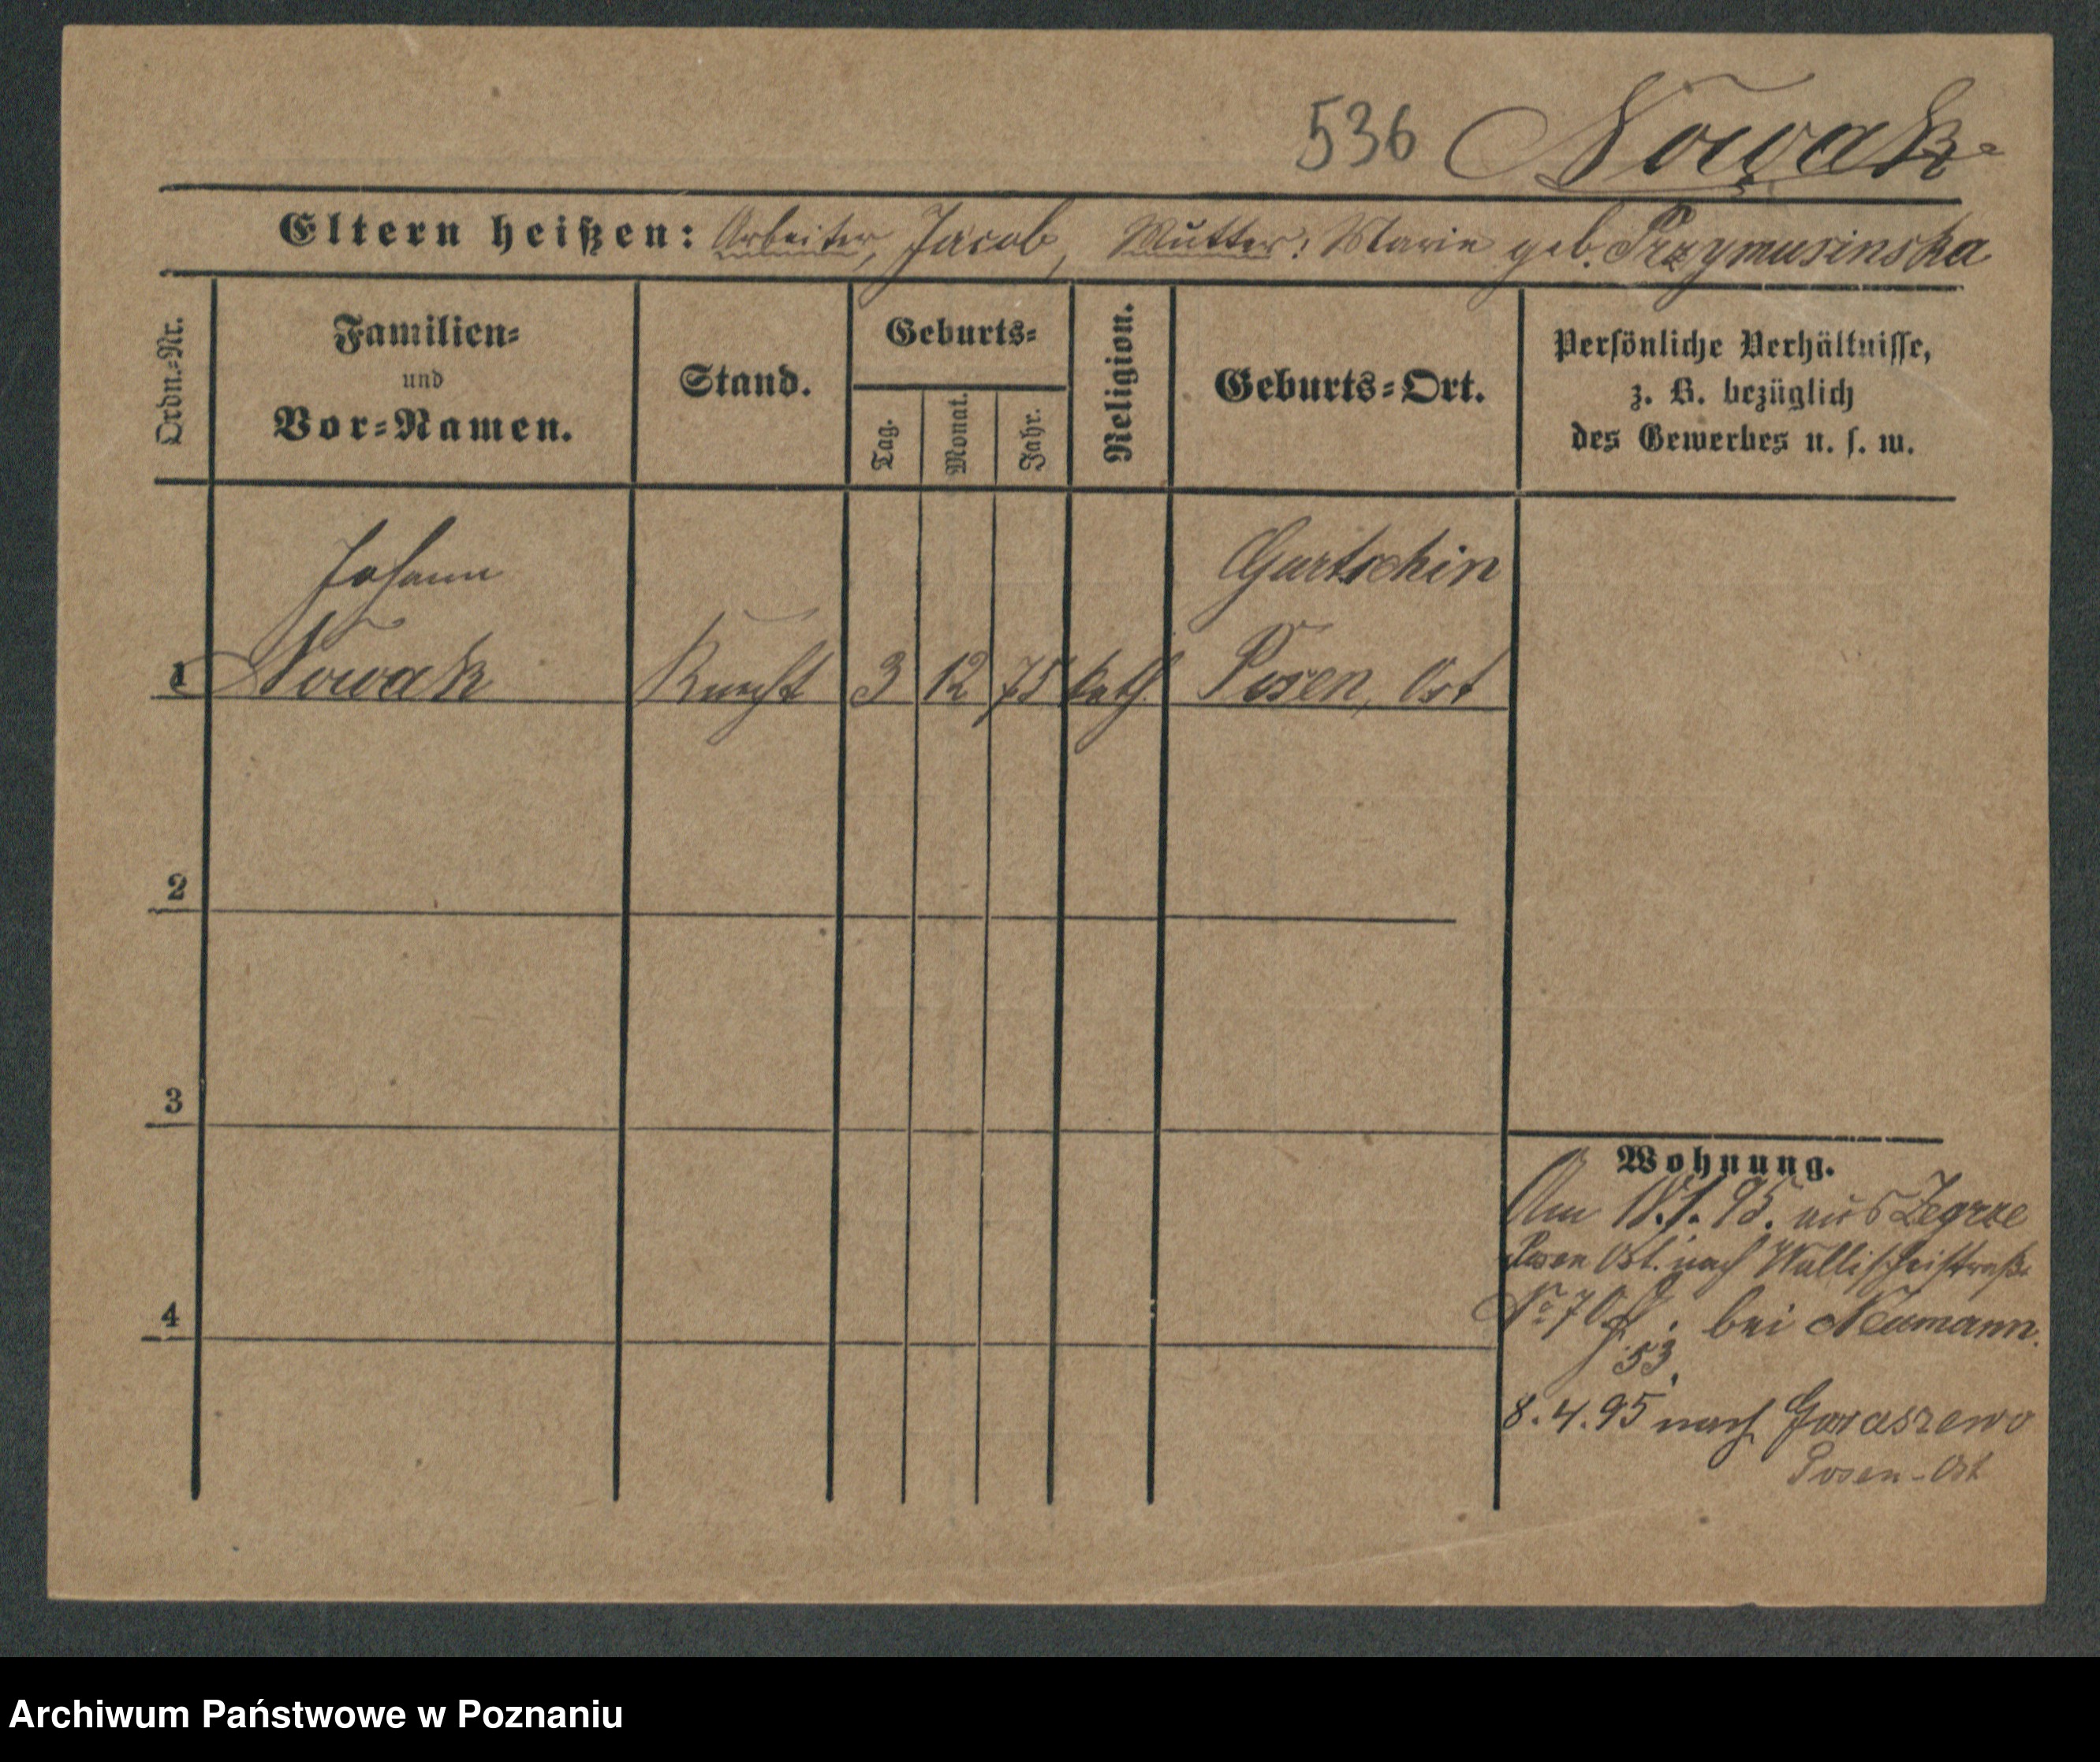 536 Nowak
Eltern heißen: Arbeiter, Jacob, Mutter: Marie geb. Przymusinska
Ordn.-Nr.
Familien-
und
Vor-Namen.
Stand.
Geburts-
Tag.
Monat.
Jahr.
Religion.
Geburts-Ort.
Persönliche Verhältnisse,
z. B. bezüglich
des Gewerbes u. s. w.
Johann
Gartschin
1 Nowak Knecht 3 12 75 kath. Posen, Ost
2
3
4
Wohnung.
Am 95. aus Zegrze
Posen Ost. nach Wallischeistraße
No 70 bei Neumann.
53.
8.4.95 nach Garaszewo
Posen-Ost
Archiwum Państwowe w Poznaniu